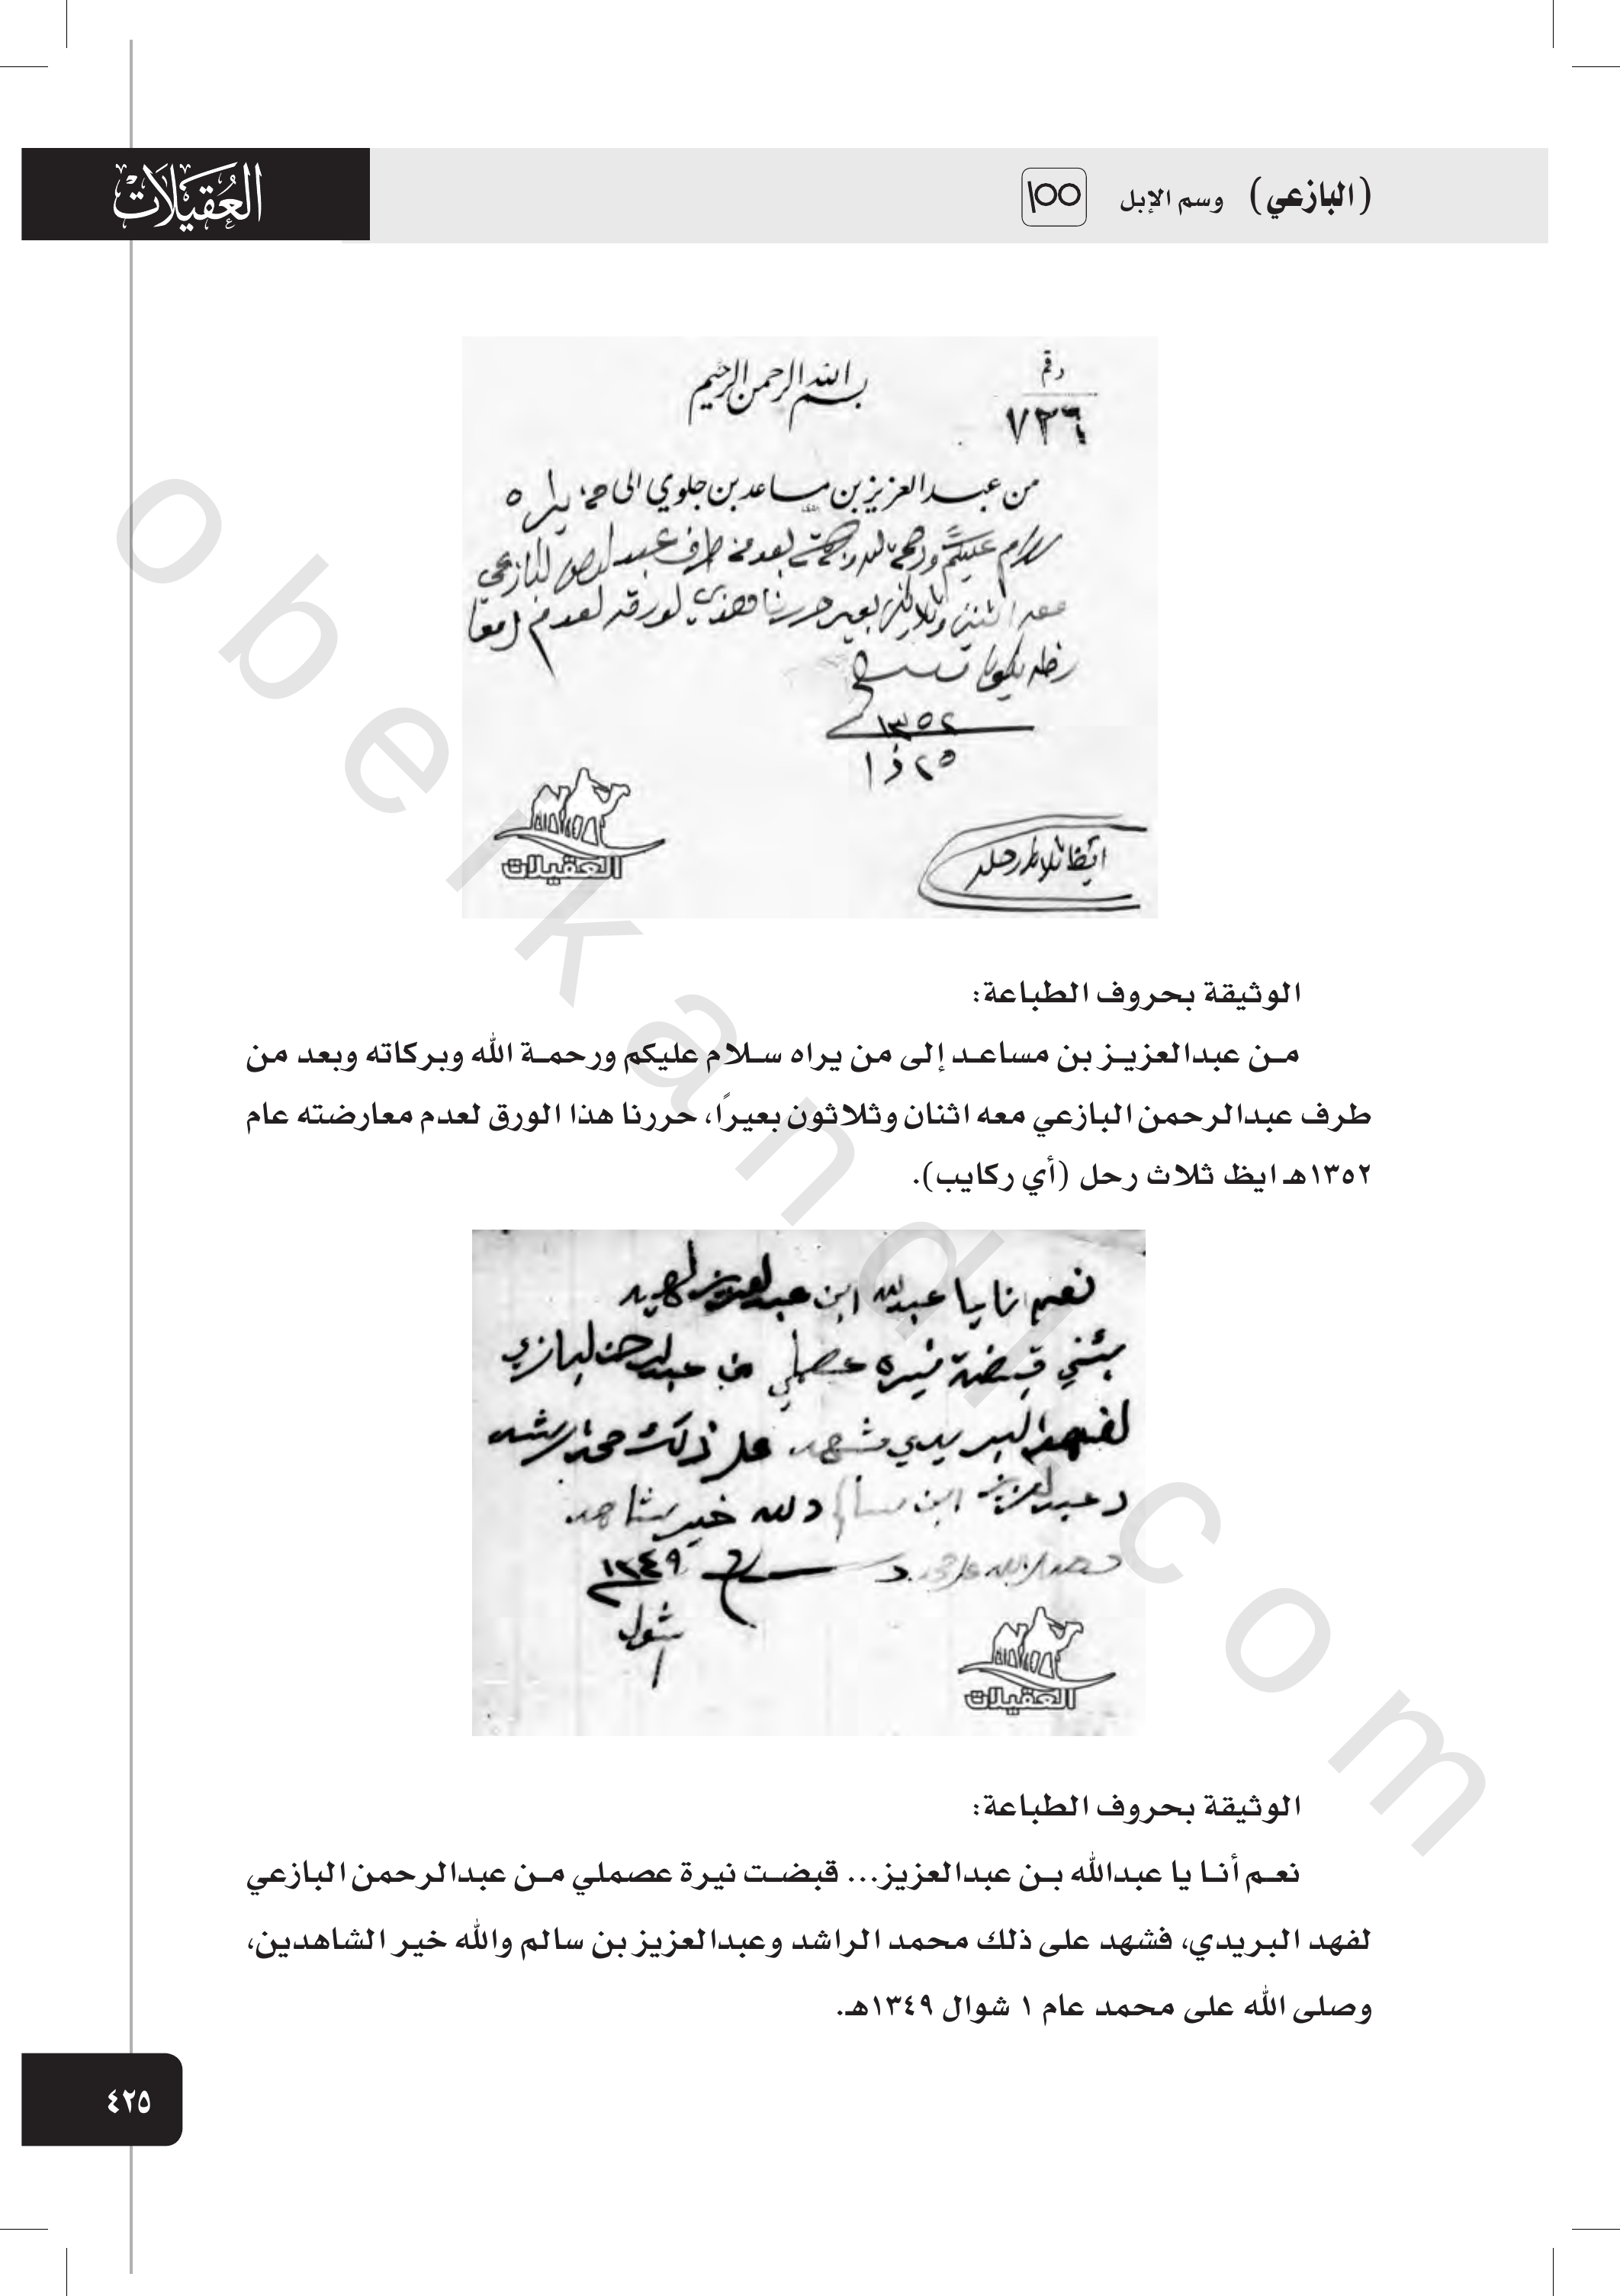 العقيلات
(البازعي) وسم الإبل ١٥٥
بسم الله الرحمن الرحيم
رقم
٧٣٦
من عبدالعزيز بن مساعد بن جلوي الى من يراه
سلام عليكم ورحمة الله وبعد من طرف البازعي
معه اثنين وثلاثين بعير حررنا لورقه لعدم
١٣٥٢
٢٥ ذ ١
ايظا ثلاث رحله
العقيلات
الوثيقة بحروف الطباعة:
من عبدالعزيز بن مساعد إلى من يراه سلام عليكم ورحمة الله وبركاته وبعد من
طرف عبدالرحمن البازعي معه اثنان وثلاثون بعيرًا، حررنا هذا الورق لعدم معارضته عام
١٣٥٢هـ ايظ ثلاث رحل (أي ركايب).
نعم انا يا عبدالله ابن عبدالعزيز
قبضة نيره عصملي من عبدالرحمن لبازعي
لفهد البريدي شهد على ذلك محمد
وعبدالعزيز ابن سالم ولله خير شاهد
١٣٤٩
شول
١
العقيلات
الوثيقة بحروف الطباعة:
نعم أنا يا عبدالله بن عبدالعزيز... قبضت نيرة عصملي من عبدالرحمن البازعي
لفهد البريدي، فشهد على ذلك محمد الراشد وعبدالعزيز بن سالم والله خير الشاهدين،
وصلى الله على محمد عام ١ شوال ١٣٤٩هـ.
٤٢٥
obeikandl.com